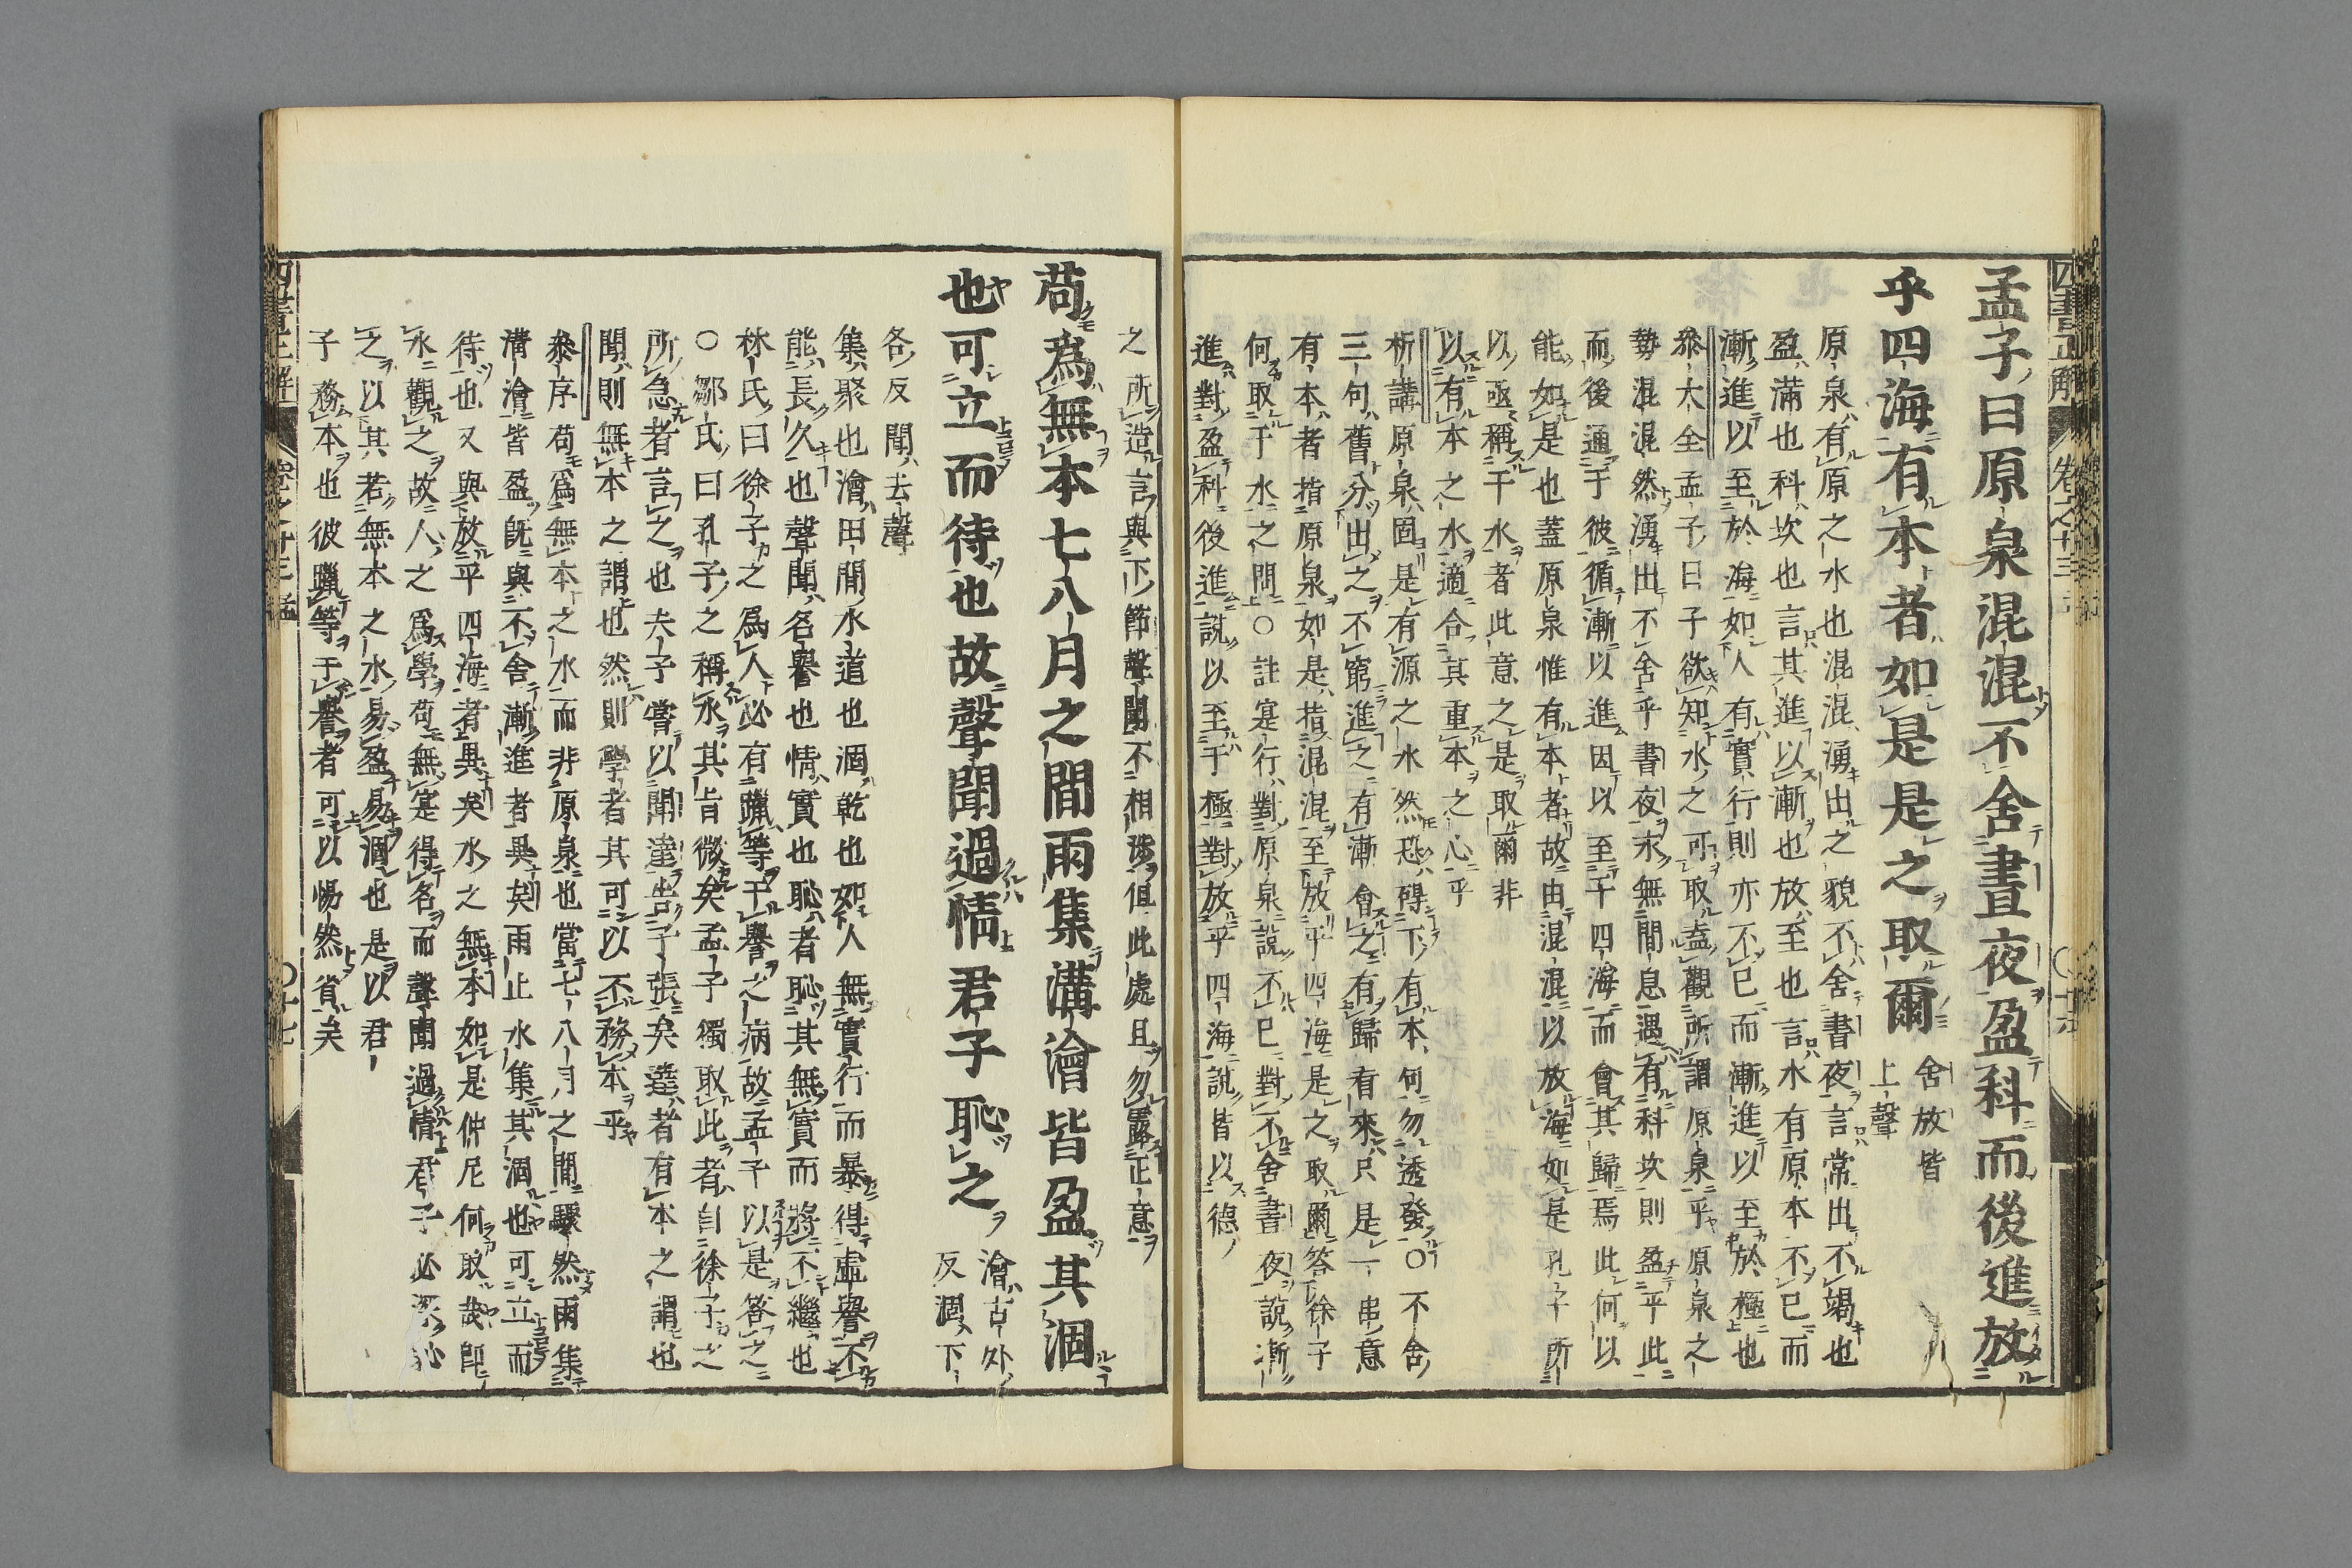 孟子曰原泉混混不舍晝夜盈科而後進放
乎四海有本者如是是之取爾
舍放皆
上聲
原泉有原之水也混混湧出之貌不舍晝夜言常出不竭也
盈滿也科坎也言其進以漸也放至也言水有原本不已而
漸進以至於海如人有實行則亦不已而漸進以至於極也
叅大全孟子曰子欲知水之可取盍觀所謂原泉乎原泉之
勢混混然湧出不舍乎晝夜永無間息遇有科坎則盈乎此
而後通于彼循漸以進因以至于四海而會其歸焉此何以
能如是也蓋原泉惟有本者故由混混以放海如是孔子所
以亟稱于水者此意之是取爾非
以有本之水適合其重本之心乎
析講原泉固是有源之水然恐碍下有本何勿透發○不舍
三句舊分出之不窮進之有漸會之有歸看來只是一串意
有本者指原泉如是指混混至放乎四海是之取爾答徐子
何取于水之問○註寔行對原泉說不已對不舍晝夜說漸
進對盈科後進說以至于極對放乎四海說皆以德
之所造言與下節聲聞不相涉但此處且勿露正意
苟爲無本七八月之間雨集溝澮皆盈其涸
也可立而待也故聲聞過情君子恥之
澮古外
反涸下
各反聞去聲
集聚也澮田間水道也涸乾也如人無實行而暴得虛譽不
能長久也聲聞名譽也情實也恥者恥其無實而將不繼也
林氏曰徐子之爲人必有躐等干譽之病故孟子以是答之
○鄒氏曰孔子之稱水其旨微矣孟子獨取此者自徐子之
所急者言之也夫子嘗以聞達告子張矣達者有本之謂也
聞則無本之謂也然則學者其可以不務本乎
叅序苟爲無本之水而非原泉也當七八月之間驟然雨集
溝澮皆盈旣與不舍漸進者異矣雨止水集其涸也可立而
待也又與放乎四海者異矣水之無本如是仲尼何取哉卽
水觀之故人之爲學苟無寔得名而聲聞過情君子必深恥
之以其若無本之水易盈易涸也是以君
子務本也彼躐等于譽者可以惕然省矣
四書正解 卷之十三 孟